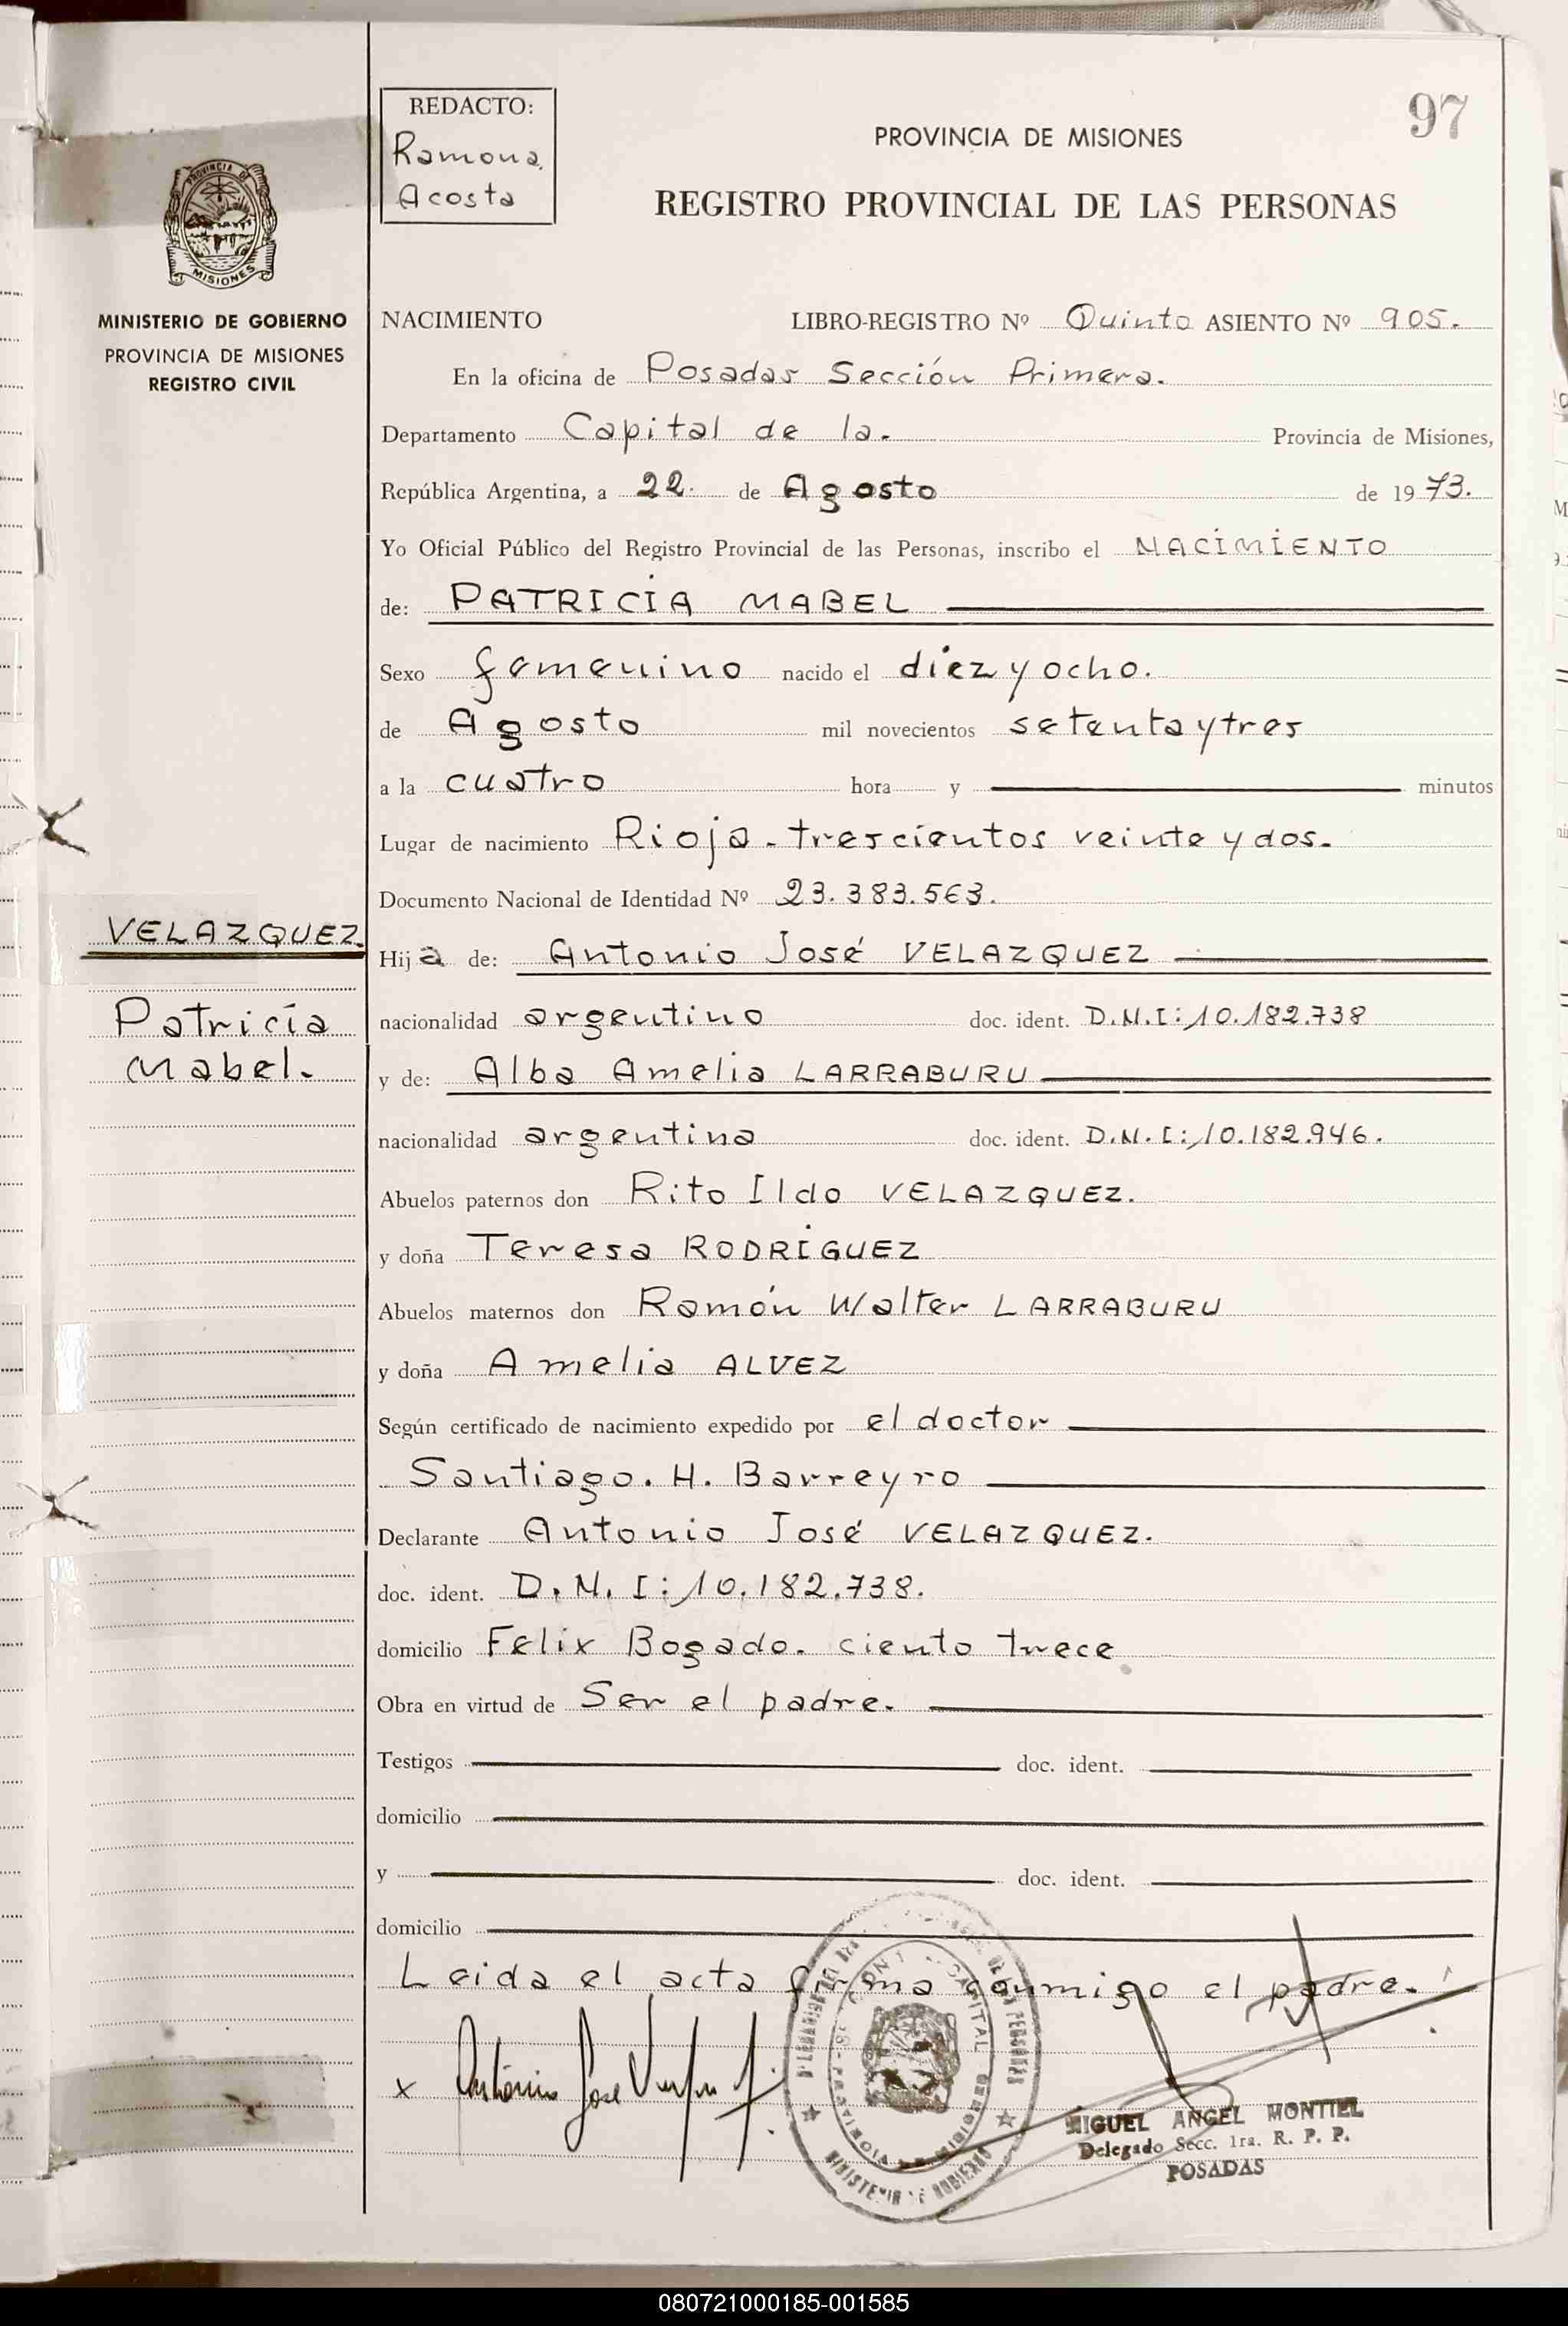 97
REDACTO:
Ramona
Acosta
PROVINCIA DE MISIONES
REGISTRO PROVINCIAL DE LAS PERSONAS
PROVINCIA DE
MISIONES
MINISTERIO DE GOBIERNO
PROVINCIA DE MISIONES
REGISTRO CIVIL
NACIMIENTO LIBRO-REGISTRO Nº Quinto ASIENTO Nº 905.
En la oficina de Posadas Sección Primera.
Departamento Capital de la. Provincia de Misiones,
República Argentina, a 22. de Agosto de 1973.
Yo Oficial Público del Registro Provincial de las Personas, inscribo el NACIMIENTO
de: PATRICIA MABEL
Sexo femenino nacido el diez y ocho.
de Agosto mil novecientos setenta y tres
a la cuatro hora y minutos
Lugar de nacimiento Rioja. trescientos veinte y dos.
Documento Nacional de Identidad Nº 23.383.563.
VELAZQUEZ
Patricia
Mabel.
Hija de: Antonio José VELAZQUEZ
nacionalidad argentino doc. ident. D.N.I: 10.182.738
y de: Alba Amelia LARRABURU
nacionalidad argentina doc. ident. D.N.I: 10.182.946.
Abuelos paternos don Rito Ildo VELAZQUEZ.
y doña Teresa RODRÍGUEZ
Abuelos maternos don Ramón Walter LARRABURU
y doña Amelia ALVEZ
Según certificado de nacimiento expedido por el doctor
Santiago. H. Barreyro
Declarante Antonio José VELAZQUEZ.
doc. ident. D.N.I: 10.182.738.
domicilio Felix Bogado. ciento trece
Obra en virtud de Ser el padre.
Testigos doc. ident.
domicilio
y doc. ident.
domicilio
Leida el acta firma conmigo el padre.
x Antonio Jose
MINISTERIO DE GOBIERNO
MIGUEL ANGEL MONTIEL
Delegado Secc. 1ra. R. P. P.
POSADAS
080721000185-001585